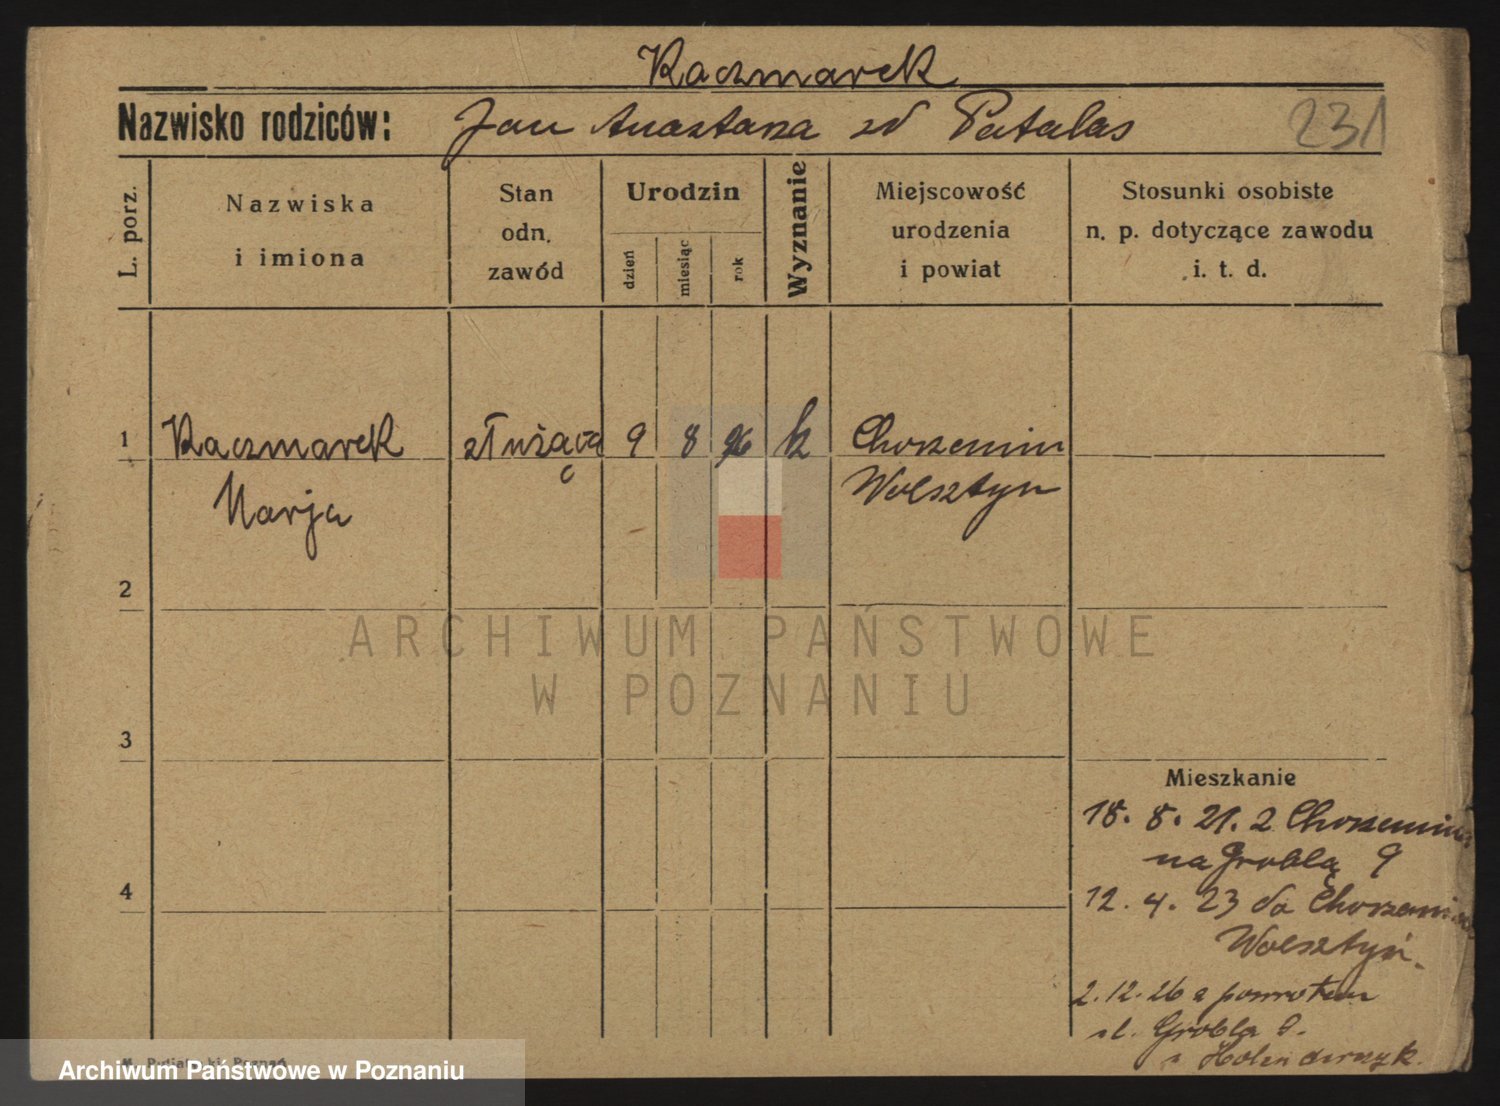 Kaczmarek
Nazwisko rodziców: Jan Anastazia zd Patalas
231
L. porz.
Nazwiska
i imiona
Stan
odn.
zawód
Urodzin
dzień
miesiąc
rok
Wyznanie
Miejscowość
urodzenia
i powiat
Stosunki osobiste
n. p. dotyczące zawodu
i. t. d.
1 Kaczmarek służąca 9 8 96 k Chorzemin
Marja Wolsztyn
2
ARCHIWUM PAŃSTWOWE
W POZNANIU
3
Mieszkanie
18. 8. 21. z Chorzemina
na Groblą 9
4
12. 4. 23 do Chorzemina
Wolsztyn.
2. 12. 26 z powrotem
ul. Grobla 9.
Poznań
Archiwum Państwowe w Poznaniu